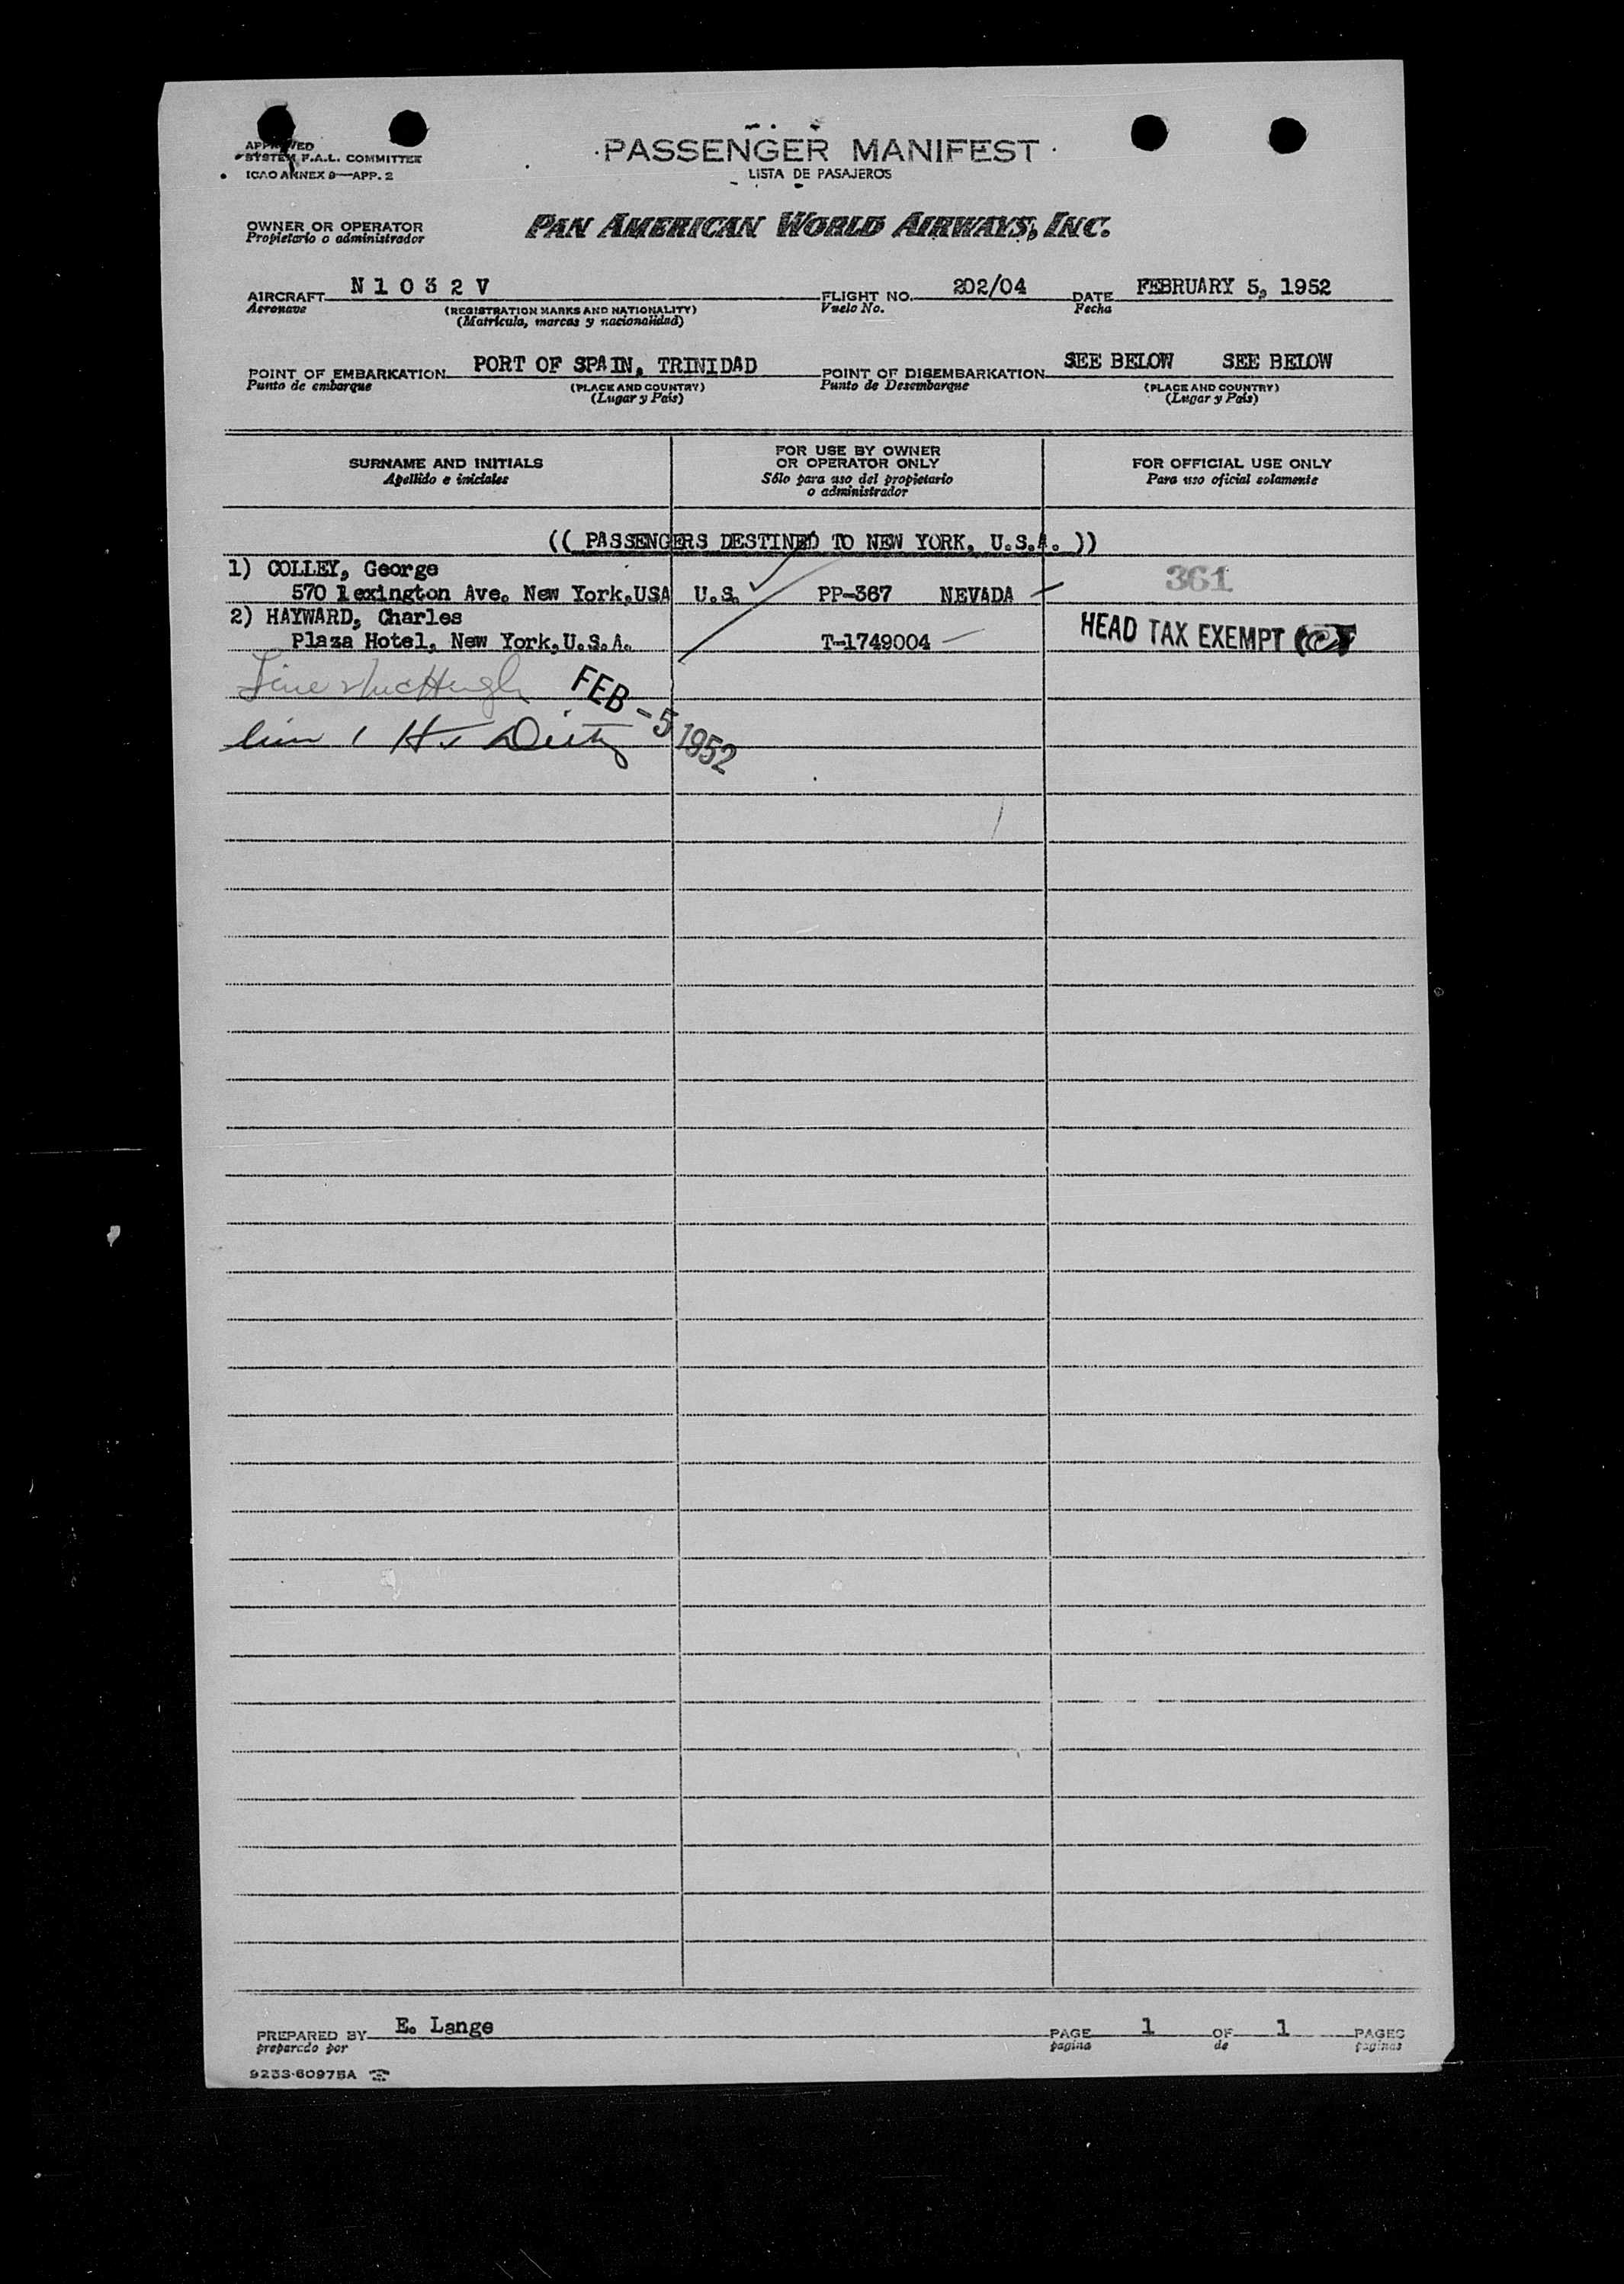 APPROVED
SYSTEM F.A.L. COMMITTEE
ICAO ANNEX 9—APP. 2
PASSENGER MANIFEST
LISTA DE PASAJEROS
OWNER OR OPERATOR
Propietario o administrador
PAN AMERICAN WORLD AIRWAYS, INC.
AIRCRAFT N 1 0 3 2 V FLIGHT NO. 202/04 DATE FEBRUARY 5, 1952
Aeronave (REGISTRATION MARKS AND NATIONALITY) Vuelo No. Fecha
(Matrícula, marcas y nacionalidad)
POINT OF EMBARKATION PORT OF SPAIN, TRINIDAD POINT OF DISEMBARKATION SEE BELOW SEE BELOW
Punto de embarque (PLACE AND COUNTRY) Punto de Desembarque (PLACE AND COUNTRY)
(Lugar y País) (Lugar y País)
SURNAME AND INITIALS
Apellido e iniciales
FOR USE BY OWNER
OR OPERATOR ONLY
Sólo para uso del propietario
o administrador
FOR OFFICIAL USE ONLY
Para uso oficial solamente
(( PASSENGERS DESTINED TO NEW YORK, U.S.A. ))
1) COLLEY, George
570 lexington Ave. New York,USA U.S. PP-367 NEVADA 361
2) HAYWARD, Charles
Plaza Hotel, New York,U.S.A. T-1749004 HEAD TAX EXEMPT
FEB -5 1952
PREPARED BY E. Lange PAGE 1 OF 1 PAGES
preparado por pagina de paginas
9233-60975A